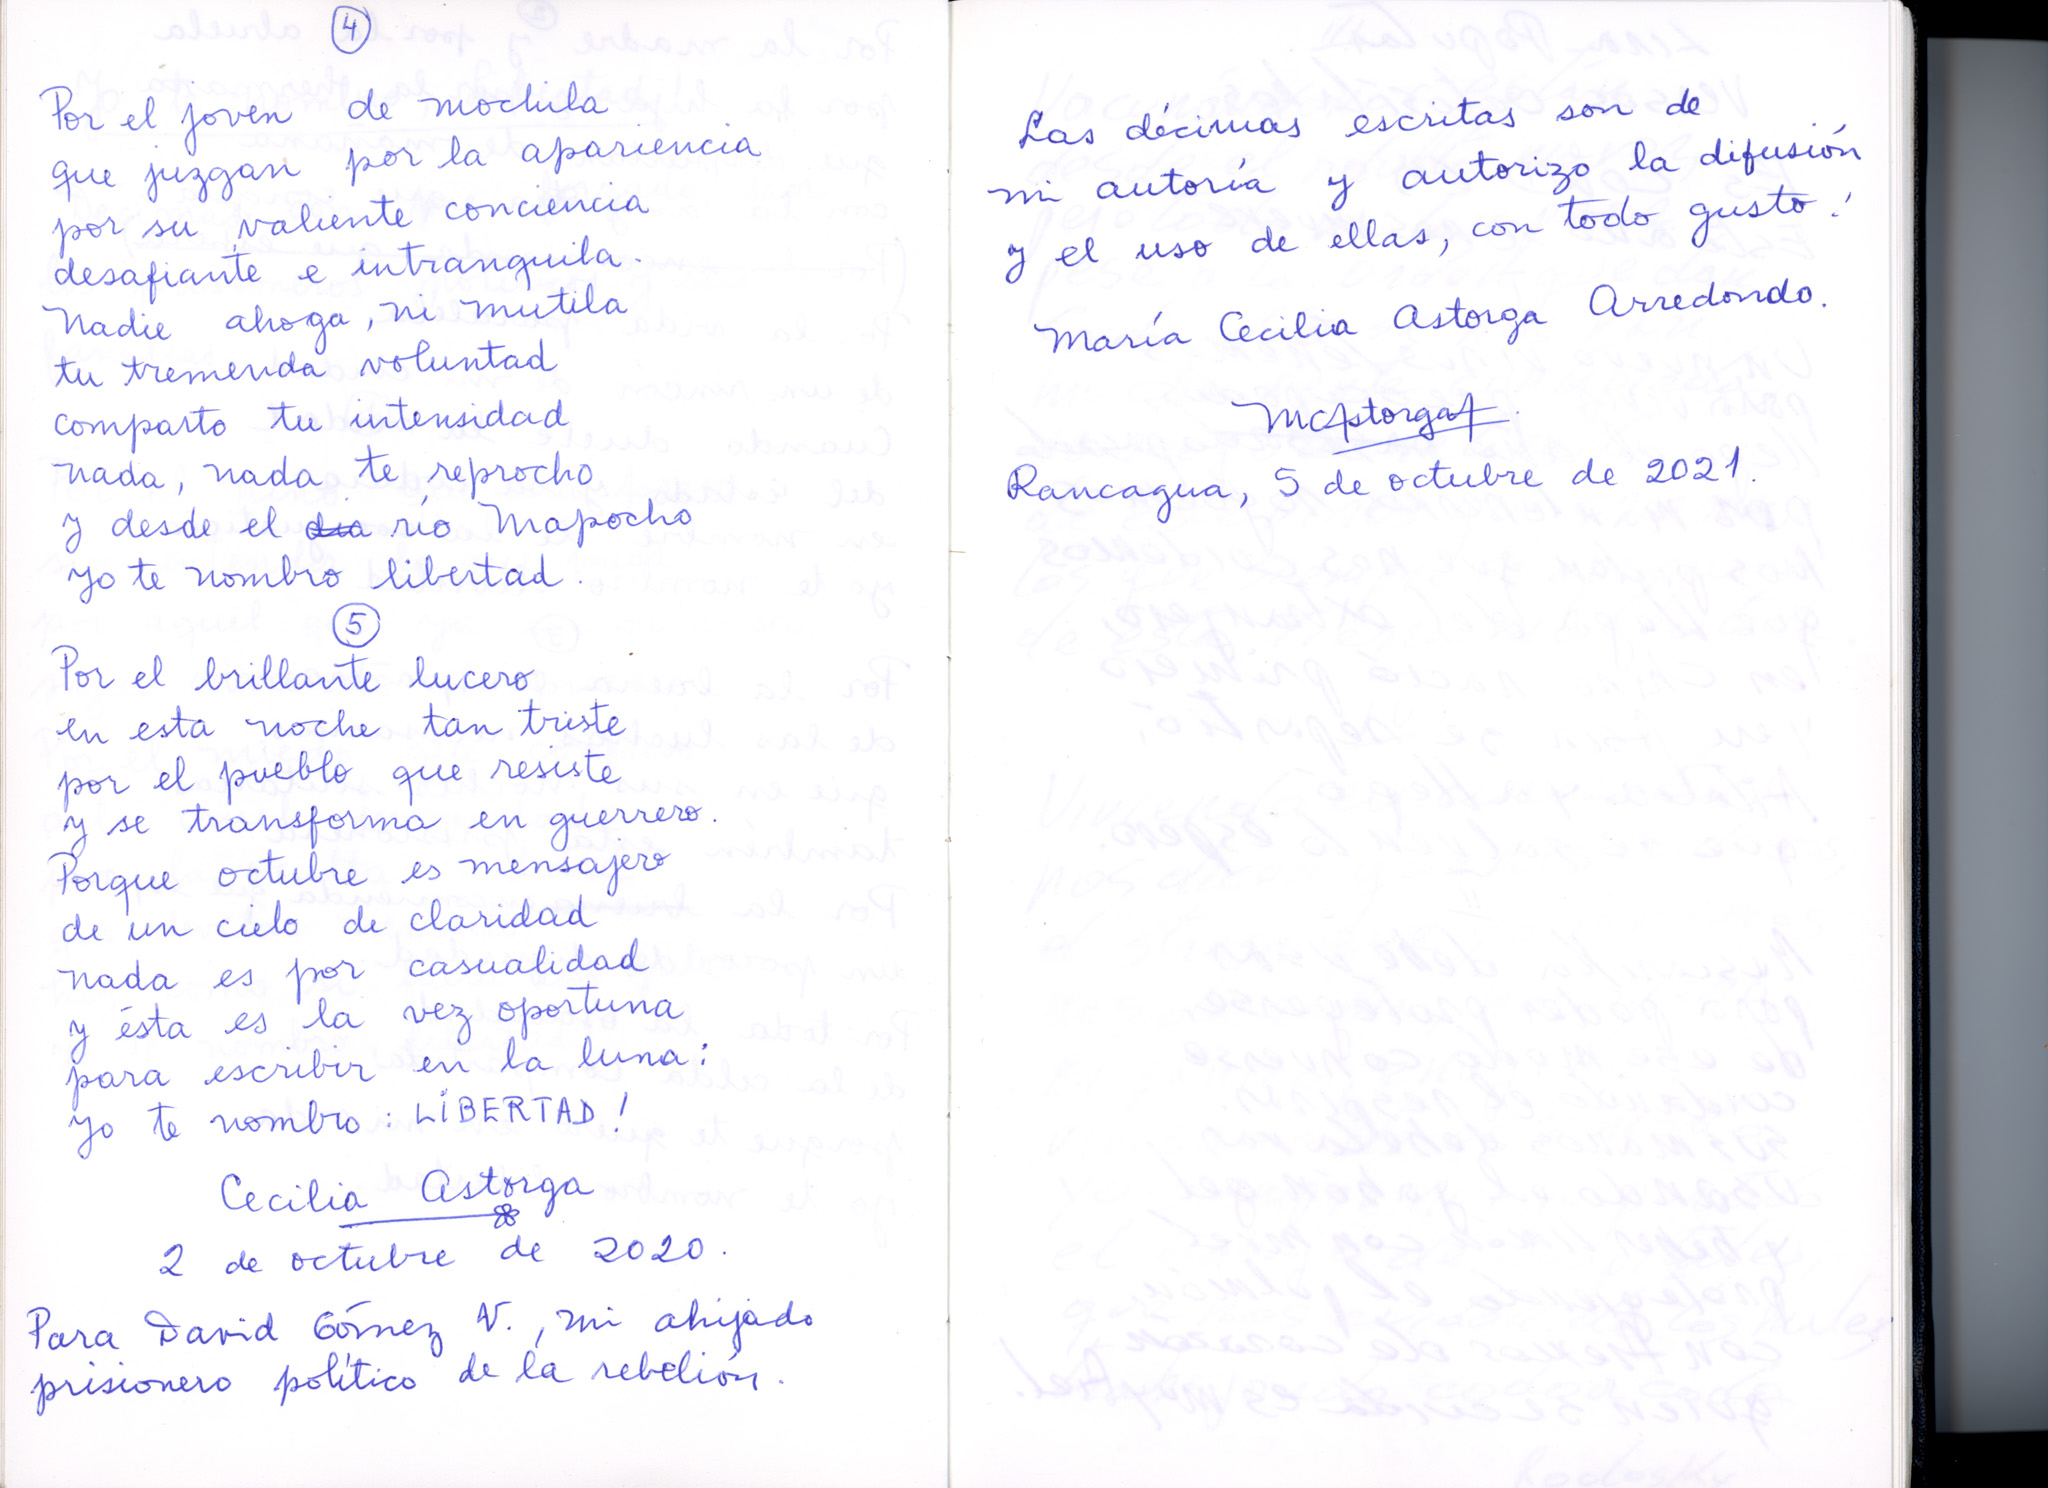 4
Por el joven de mochila
que juzgan por la apariencia
por su valiente conciencia
desafiante e intranquila.
Nadie ahoga, ni mutila
tu tremenda voluntad
comparto tu intensidad
nada, nada te reprocho
y desde el río Mapocho
yo te nombro libertad.
5
Por el brillante lucero
en esta noche tan triste
por el pueblo que resiste
y se transforma en guerrero.
Porque octubre es mensajero
de un cielo de claridad
nada es por casualidad
y ésta es la vez oportuna
para escribir en la luna:
yo te nombro: LIBERTAD!
Cecilia Astorga
2 de octubre de 2020.
Para David Gómez V., mi ahijado
prisionero político de la rebelión.
Las décimas escritas son de
mi autoría y autorizo la difusión
y el uso de ellas, con todo gusto!
María Cecilia Astorga Arredondo.
MCAstorgaA
Rancagua, 5 de octubre de 2021.